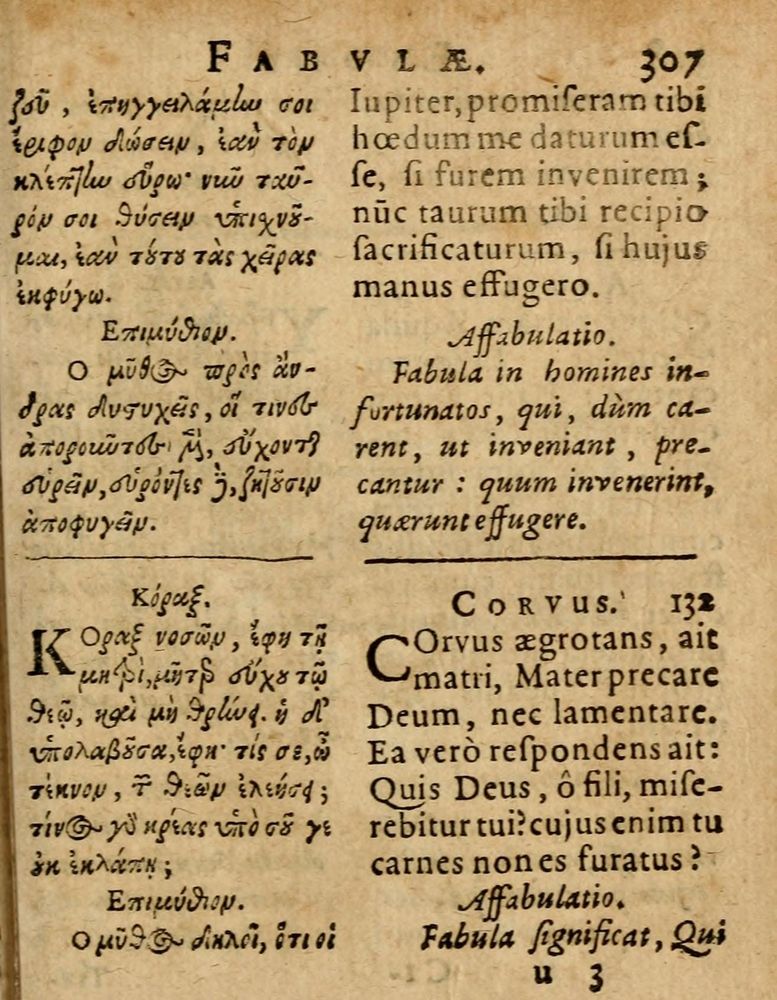 FABVLÆ. 307
ζοῦ, ἐπηγγειλάμίω σοι
ἔριφον δώσειν, ἐὰν τὸν
κλέπτίω εὕρω· νιῦ ταῦ-
ρόν σοι θύσειν ὑπιχνοῦ-
μαι, ἐὰν τούτου τὰς χεῖρας
ἐκφύγω.
Επιμύθιον.
Ο μῦθος πρὸς ἄν-
δρας δυστυχεῖς, οἵ τινες
ἀποροιῶτες μὲν, εὔχονται
εὑρεῖν, εὑρόντες δὲ, ζητοῦσιν
ἀποφυγεῖν.
Κόραξ.
ΚΟραξ νοσῶν, ἔφη τῇ
μητρὶ, μῆτερ εὔχου τῷ
θεῷ, καὶ μὴ θρίωει. ἡ δ'
ὑπολαβοῦσα, ἔφη· τίς σε, ὦ
τέκνον, τῶν θεῶν ἐλεήσει;
τίνος γὸ κρέας ὑπὸ σοῦ γε
οὐκ ἐκλάπη;
Επιμύθιον.
Ο μῦθος δηλοῖ, ὅτι οἱ
Iupiter, promiſeram tibi
hœdum me daturum eſ-
ſe, ſi furem invenirem;
nūc taurum tibi recipio
ſacrificaturum, ſi hujus
manus effugero.
Affabulatio.
Fabula in homines in-
fortunatos, qui, dùm ca-
rent, ut inveniant, pre-
cantur: quum invenerint,
quærunt effugere.
CORVUS. 132
COrvus ægrotans, ait
matri, Mater precare
Deum, nec lamentare.
Ea verò reſpondens ait:
Quis Deus, ô fili, miſe-
rebitur tui? cujus enim tu
carnes non es furatus?
Affabulatio.
Fabula ſignificat, Qui
u 3